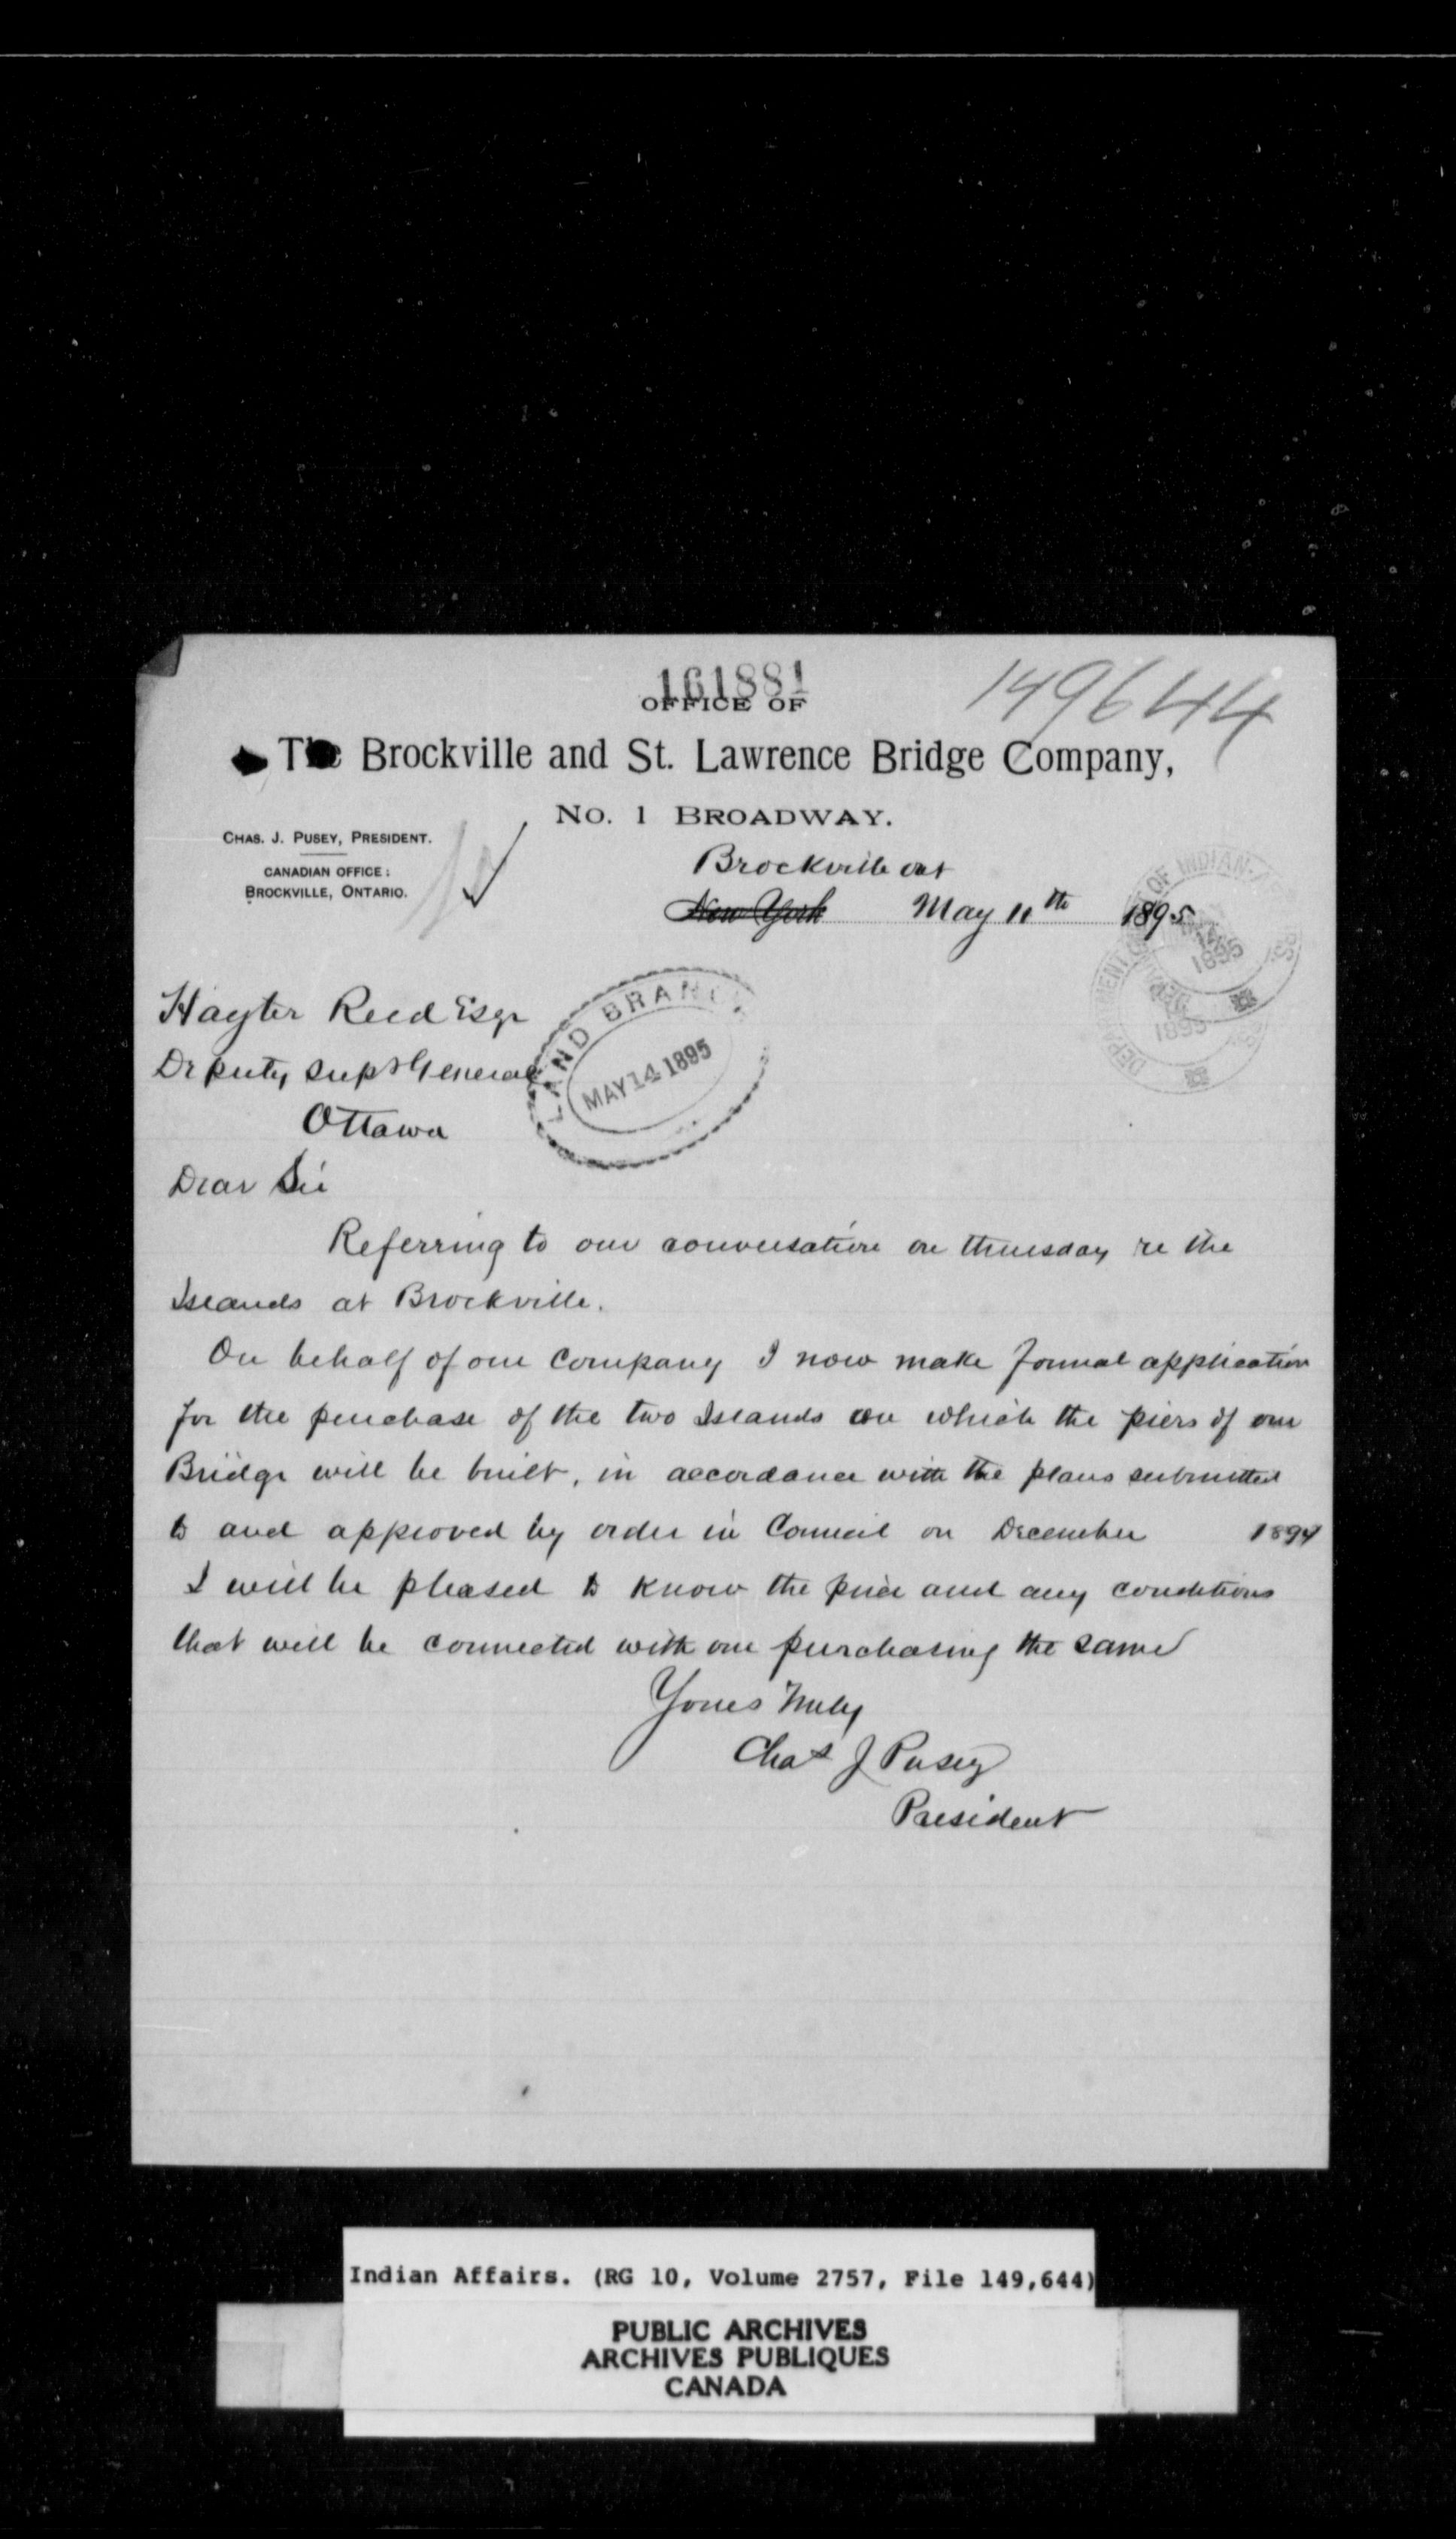 161881
149644
OFFICE OF
The Brockville and St. Lawrence Bridge Company,
No. 1 BROADWAY.
CHAS. J. PUSEY, PRESIDENT.
CANADIAN OFFICE:
BROCKVILLE, ONTARIO.
Brockville Ont
New York May 11th 1895
DEPARTMENT OF INDIAN
1895
1895
Hayter Reed Esqr
Deputy Supt General
Ottawa
LAND BRANCH
MAY 14 1895
Dear Sir
Referring to our conversation on thursday re the
Islands at Brockville.
On behalf of our Company I now make formal application
for the purchase of the two Islands on which the piers of our
Bridge will be built, in accordance with the plans submitted
to and approved by order in Council on December 1894
I will be pleased to know the price and any conditions
that will be connected with our purchasing the same
Yours truly
Chas J Pusey
President
Indian Affairs. (RG 10, Volume 2757, File 149,644)
PUBLIC ARCHIVES
ARCHIVES PUBLIQUES
CANADA